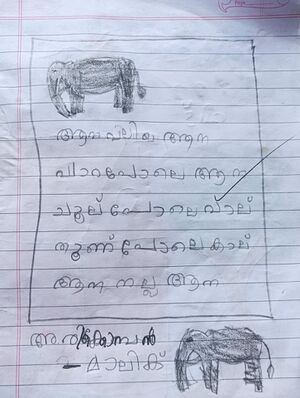 ആന വലിയ ആന
പാറപോലെ ആന
ചൂല് പോലെ വാല്
തൂണ് പോലെ കാല്
ആന നല്ല ആന
അരിക്കൊമ്പൻ
മാലിക്